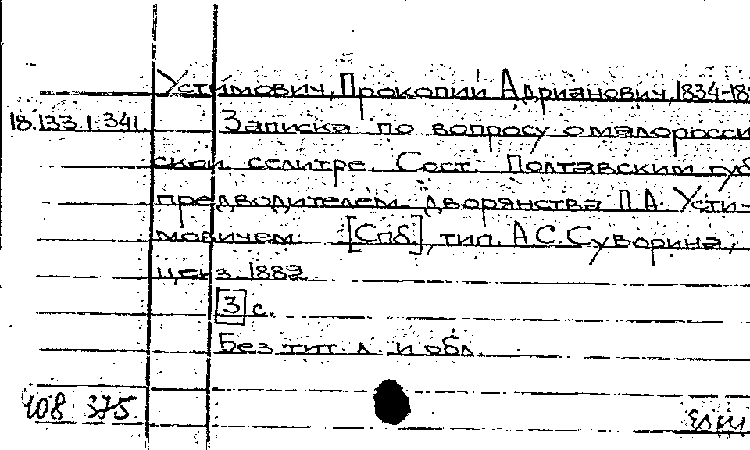 Устимович, Прокопий Адрианович, 1834-18
18.133.1.341. Записка по вопросу о малоросси
ской селитре. Сост. Полтавским губ
предводителем дворянства П.А. Усти-
мовичем. [Спб.], тип. А.С. Суворина,
ценз. 1882
[3] с.
Без тит. л. и обл.
408 375